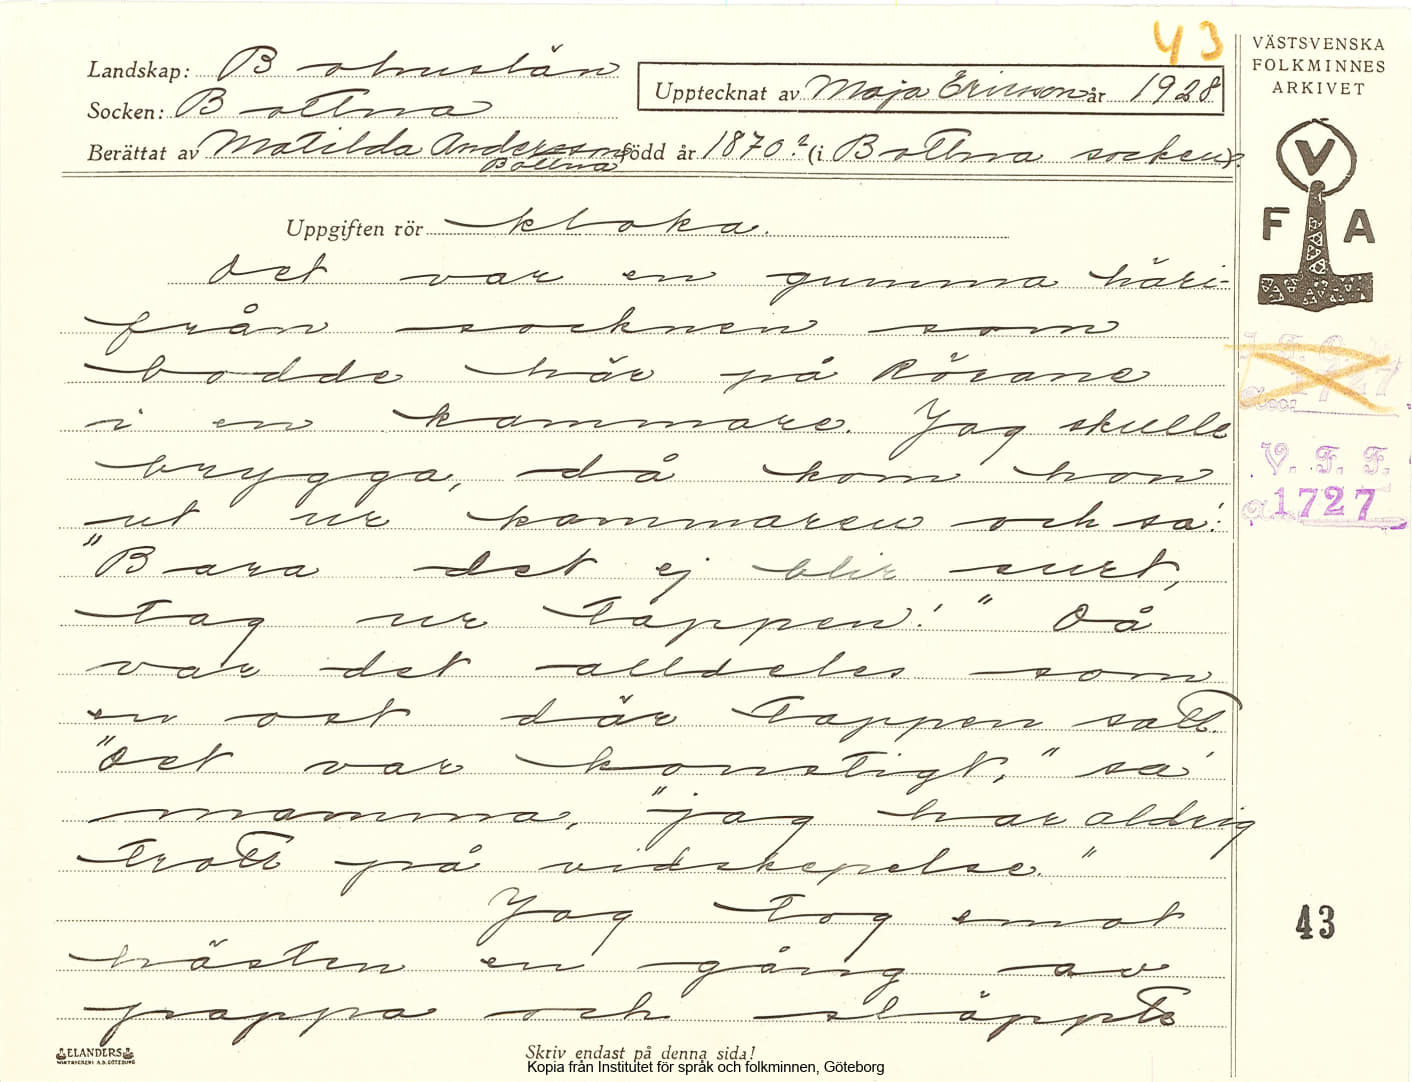 43
VÄSTSVENSKA
FOLKMINNES
ARKIVET
Landskap: Bohuslän
Socken: Bottna
Upptecknat av Maja Ericson år 1928
Berättat av Matilda Andersson född år 1870? (i Bottna socken).
Bottna
V
F A
Uppgiften rör kloka.
Det var en gumma häri-
från socknen som
bodde här på Rörane
i en kammare. Jag skulle
brygga, då kom hon
ut ur kammaren och sa':
"Bara det ej blir surt,
tag ur tappen!" Då
var det alldeles som
en ost där tappen satt.
"Det var konstigt," sa'
mamma, "jag har aldrig
trott på vidskepelse."
Jag tog emot
hästen en gång av
pappa och släppte
1727
V. F. F.
1727
43
ELANDERS
BOKTRYCKERI A.B. GÖTEBORG
Skriv endast på denna sida!
Kopia från Institutet för språk och folkminnen, Göteborg